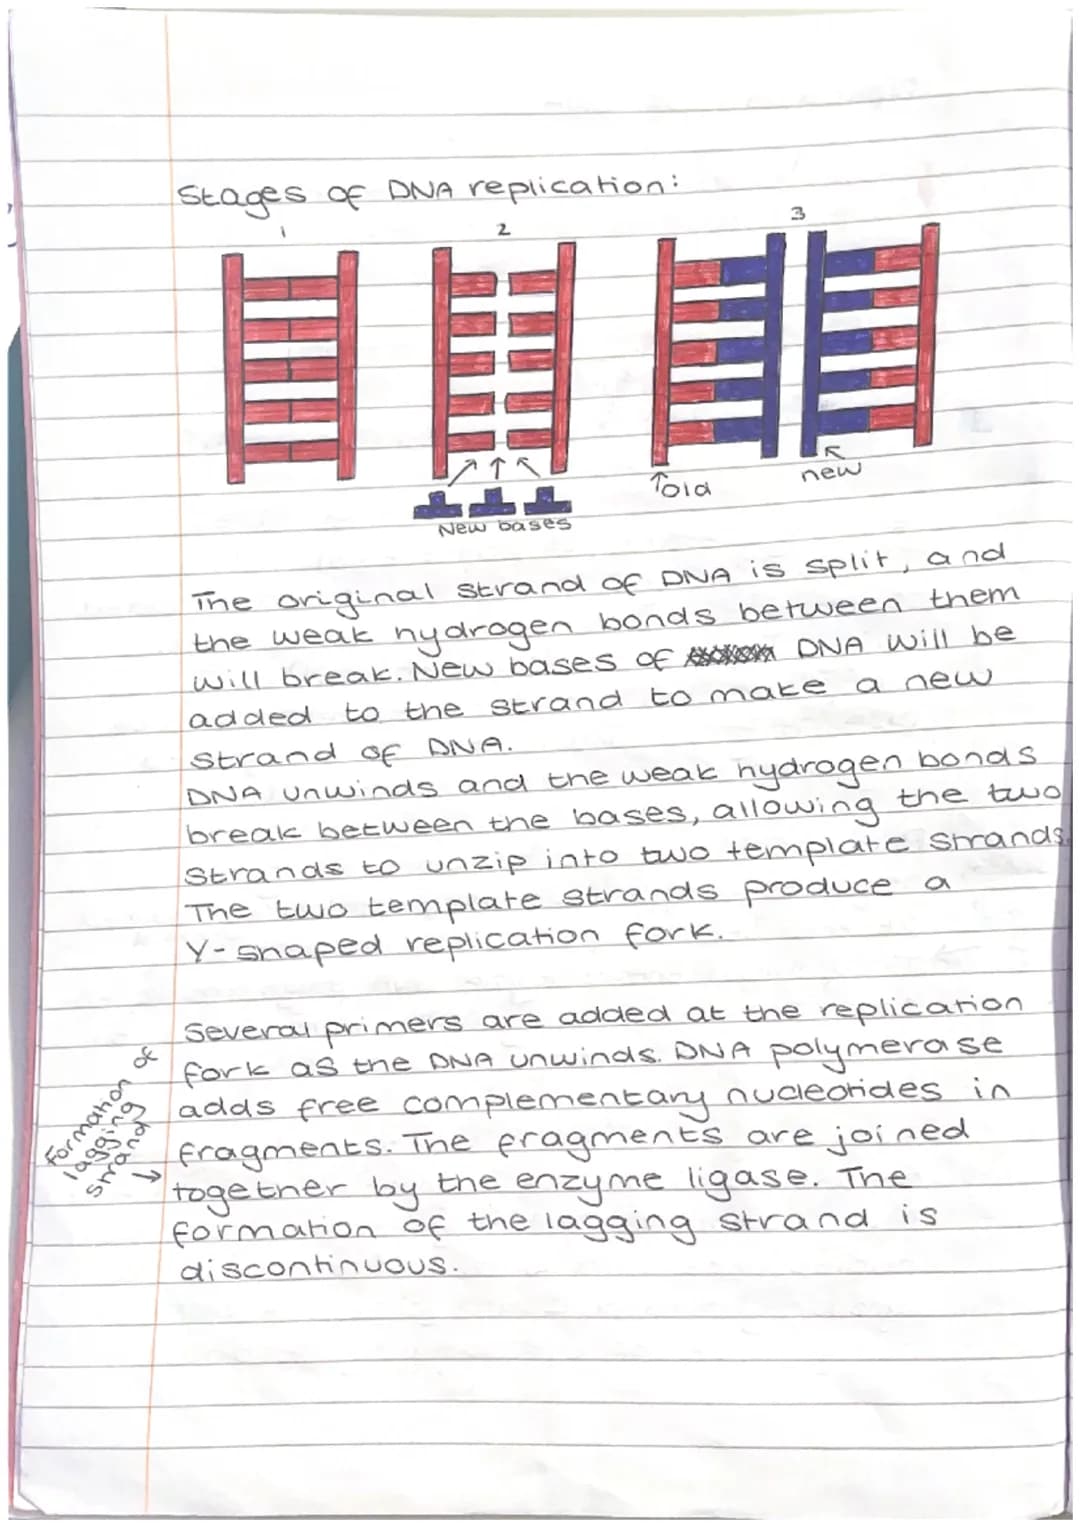 Stages of DNA replication:
1 2 3
New bases
old
new
The original strand of DNA is split, and
the weak hydrogen bonds between them
will break. New bases of DNA will be
added to the strand to make a new
strand of DNA.
DNA unwinds and the weak hydrogen bonds
break between the bases, allowing the two
strands to unzip into two template strands.
The two template strands produce a
Y-shaped replication fork.
Several primers are added at the replication
fork as the DNA unwinds. DNA polymerase
adds free complementary nucleotides in
fragments. The fragments are joined
together by the enzyme ligase. The
formation of the lagging strand is
discontinuous.
Formation of
lagging
strand